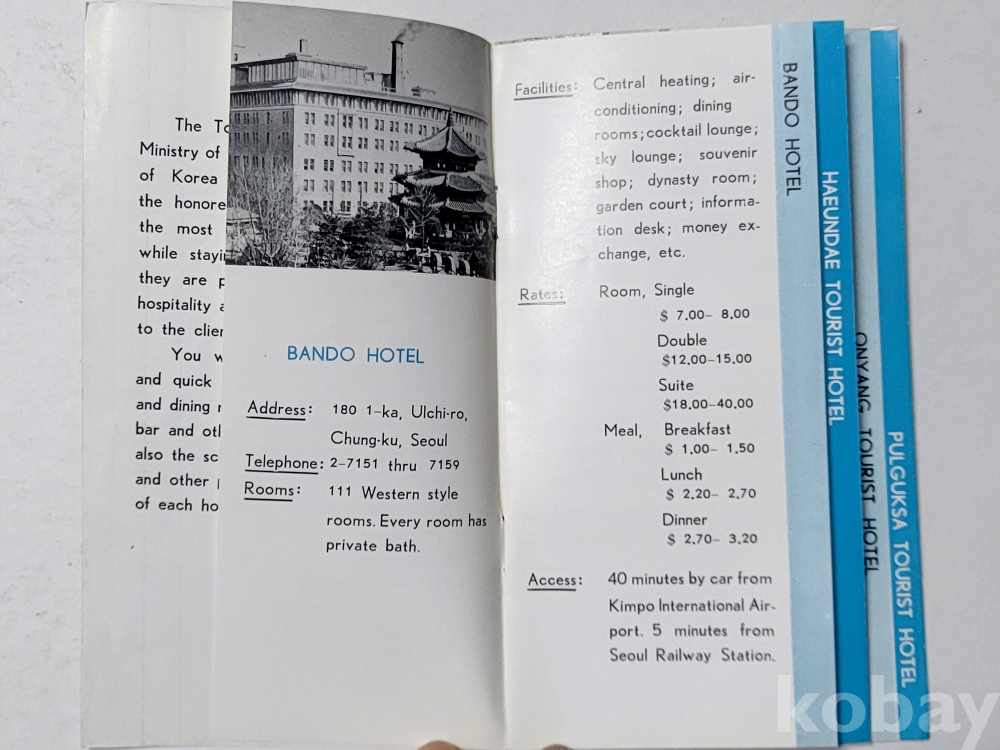 The
Ministry of
of Korea
the
the most
while
they are
hospitality
to the
You
and quick
and dining
bar and
also the
and other
of each
BANDO HOTEL
Address: 180 1-ka, Ulchi-ro,
Chung-ku, Seoul
Telephone: 2-7151 thru 7159
Rooms: 111 Western style
rooms. Every room has
private bath.
Facilities: Central heating; air-
conditioning; dining
rooms; cocktail lounge;
sky lounge; souvenir
shop; dynasty room;
garden court; informa-
tion desk; money ex-
change, etc.
Rates: Room, Single
$ 7.00- 8.00
Double
$12.00-15.00
Suite
$18.00-40.00
Meal, Breakfast
$ 1.00- 1.50
Lunch
$ 2.20- 2.70
Dinner
$ 2.70- 3.20
Access: 40 minutes by car from
Kimpo International Air-
port. 5 minutes from
Seoul Railway Station.
BANDO HOTEL
HAEUNDAE TOURIST HOTEL
ONYANG TOURIST HOTEL
PULGUKSA TOURIST HOTEL
kobay